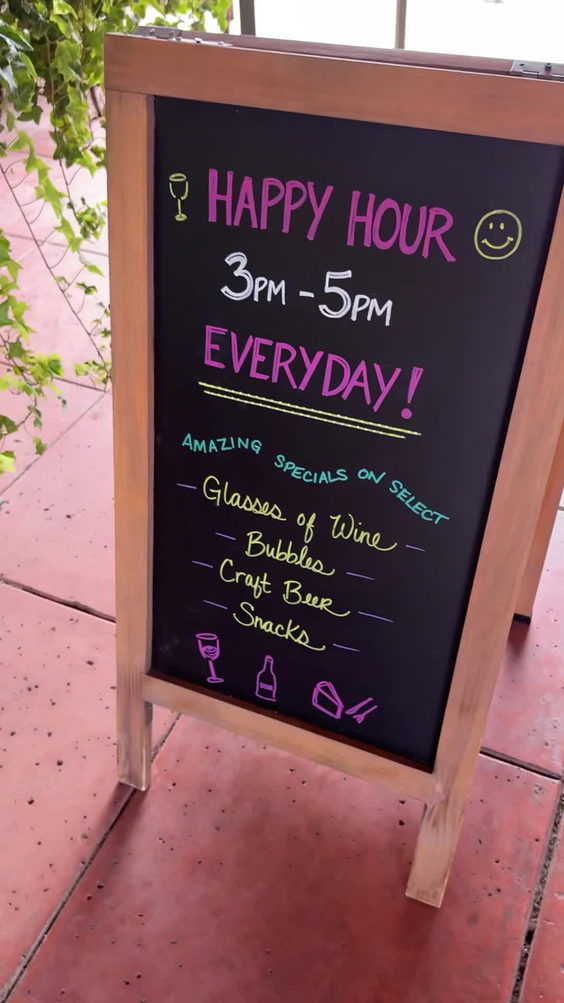 HAPPY HOUR
3PM - 5PM
EVERYDAY!
AMAZING SPECIALS ON SELECT
— Glasses of Wine —
— Bubbles —
— Craft Beer —
— Snacks —